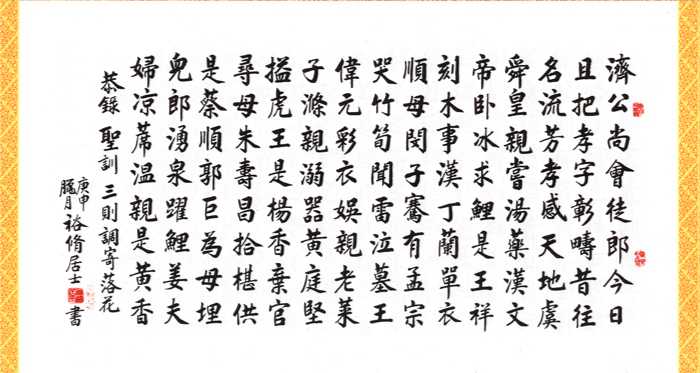 濟公尚會徒郎今日
且把孝字彰疇昔往
名流芳孝感天地虞
舜皇親嘗湯藥漢文
帝卧冰求鯉是王祥
刻木事漢丁蘭單衣
順母閔子騫有孟宗
哭竹筍聞雷泣墓王
偉元彩衣娛親老萊
子滌親溺器黃庭堅
搤虎王是楊香棄官
尋母朱壽昌拾椹供
是蔡順郭巨為母埋
兒郎湧泉躍鯉姜夫
婦凉蓆温親是黃香
恭錄聖訓三則調寄落花
庚申臘月裕脩居士書